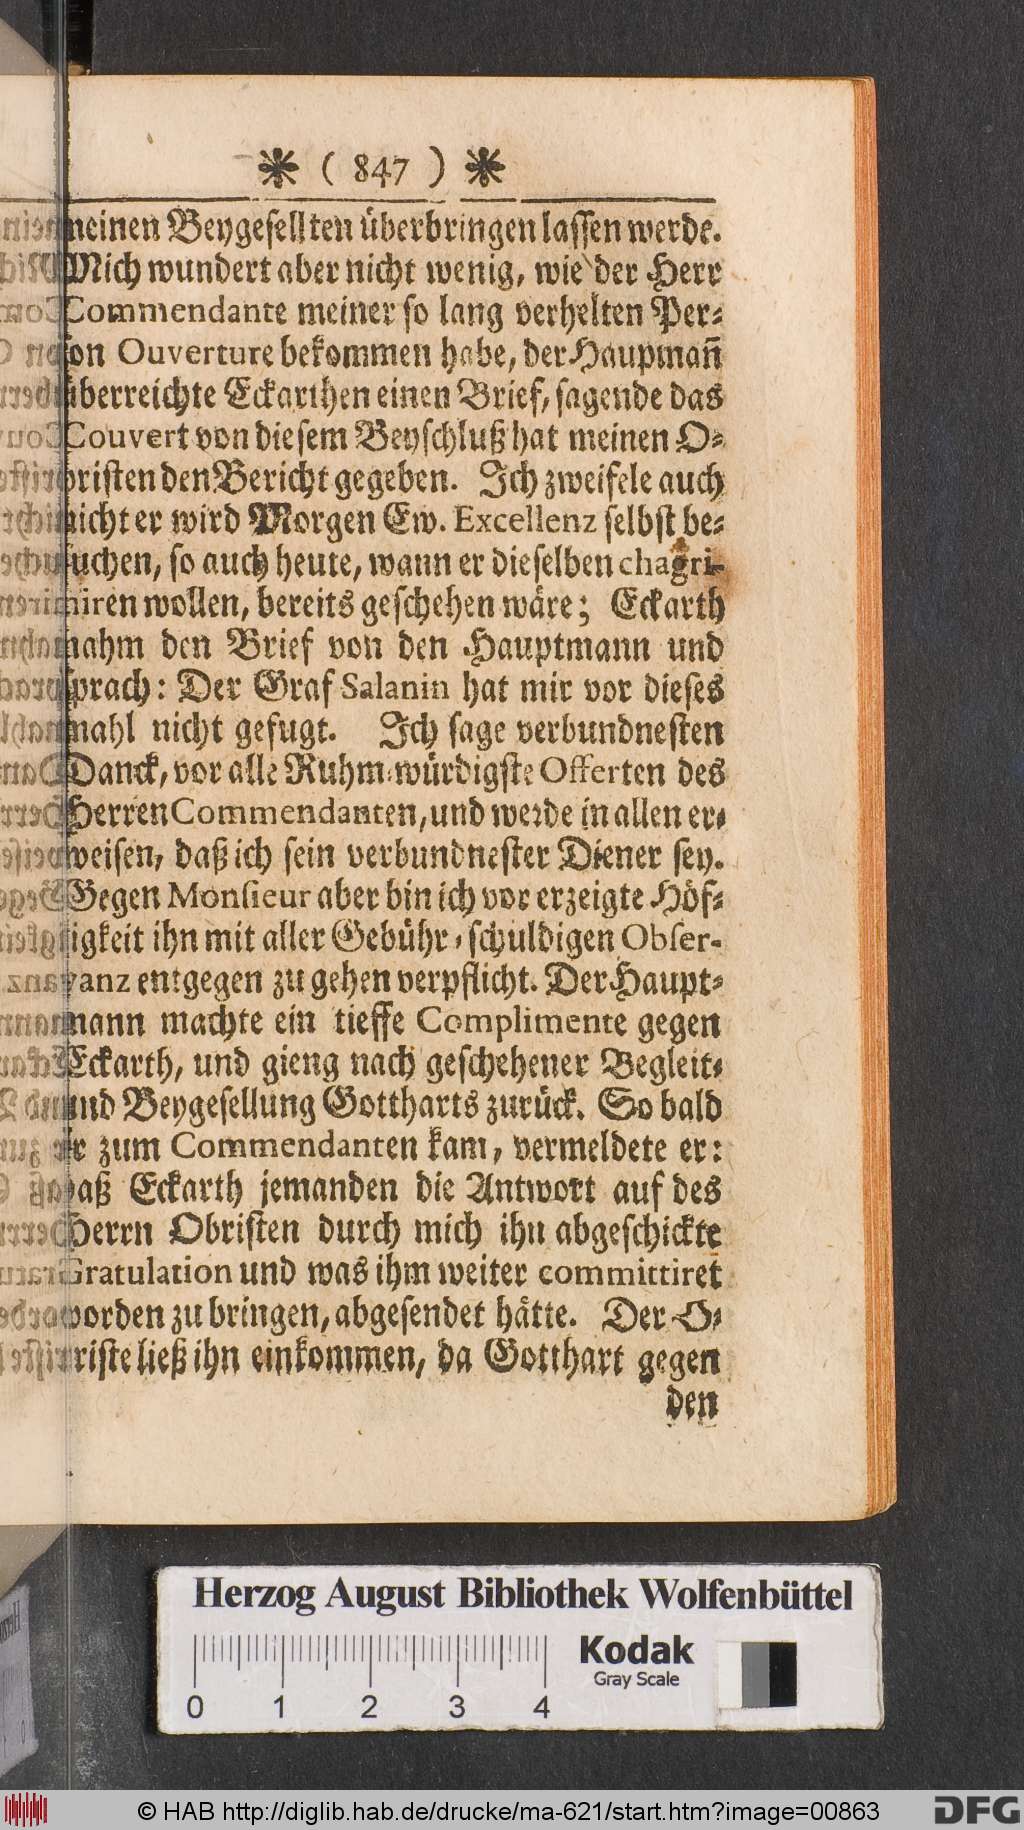 ❋ ( 847 ) ❋
meinen Beygesellten überbringen lassen werde.
Mich wundert aber nicht wenig, wie der Herr
Commendante meiner so lang verhelten Per-
son Ouverture bekommen habe, der Haupman̄
überreichte Eckarthen einen Brief, sagende das
Couvert von diesem Beyschluß hat meinen O-
bristen den Bericht gegeben. Ich zweifele auch
nicht er wird Morgen Ew. Excellenz selbst be-
suchen, so auch heute, wann er dieselben chagri-
niren wollen, bereits geschehen wäre; Eckarth
nahm den Brief von den Hauptmann und
sprach: Der Graf Salanin hat mir vor dieses
mahl nicht gefugt. Ich sage verbundnesten
Danck, vor alle Ruhm-würdigste Offerten des
Herren Commendanten, und werde in allen er-
weisen, daß ich sein verbundnester Diener sey.
Gegen Monsieur aber bin ich vor erzeigte Höf-
ligkeit ihn mit aller Gebühr-schuldigen Obser-
vanz entgegen zu gehen verpflicht. Der Haupt-
mann machte ein tieffe Complimente gegen
Eckarth, und gieng nach geschehener Begleit-
und Beygesellung Gottharts zurück. So bald
er zum Commendanten kam, vermeldete er:
daß Eckarth jemanden die Antwort auf des
Herrn Obristen durch mich ihn abgeschickte
Gratulation und was ihm weiter committiret
worden zu bringen, abgesendet hätte. Der O-
briste ließ ihn einkommen, da Gotthart gegen
den
Herzog August Bibliothek Wolfenbüttel
Kodak
Gray Scale
0 1 2 3 4
© HAB http://diglib.hab.de/drucke/ma-621/start.htm?image=00863
DFG